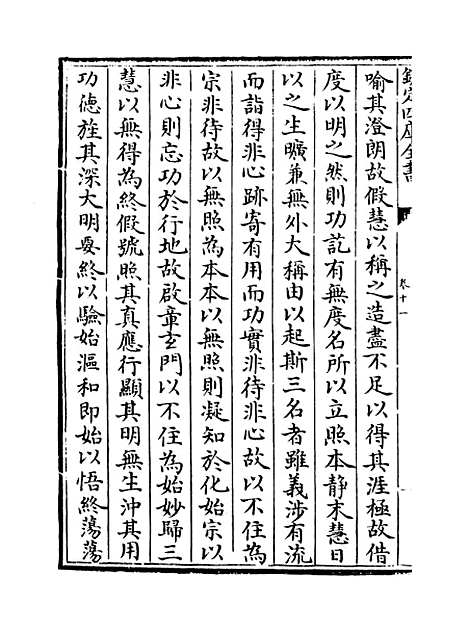 欽定四庫全書
卷十一
喻其澄朗故假慧以稱之造盡不足以得其涯極故借
度以明之然則功託有無度名所以立照本静末慧目
以之生曠兼無外大稱由以起斯三名者雖義涉有流
而詣得非心跡寄有用而功實非待非心故以不住為
宗非待故以無照為本本以無照則凝知於化始宗以
非心則忘功於行地故啟章玄門以不住為始妙歸三
慧以無得為終假號照其真應行顯其明無生沖其用
功徳旌其深大明要終以驗始漚和即始以悟終蕩蕩